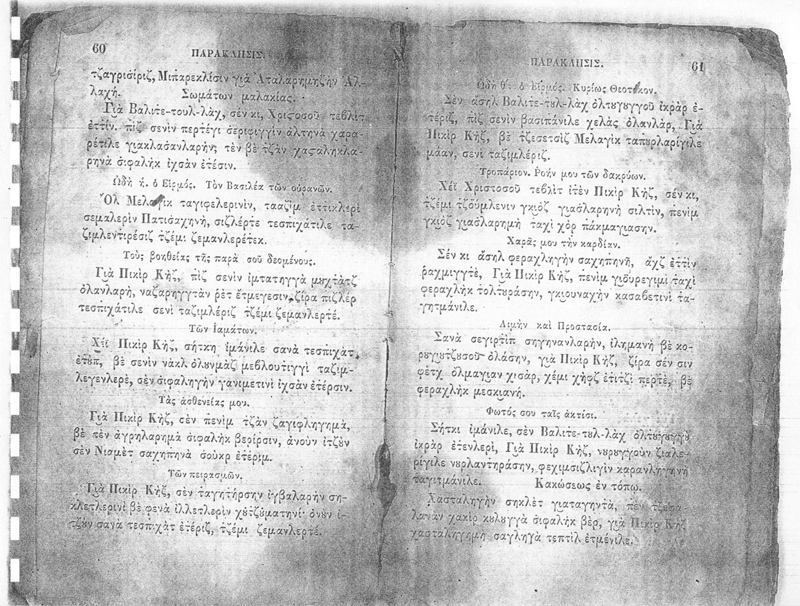 60
ΠΑΡΑΚΛΗΣΙΣ.
τζαγρισίριζ, Μιπαρεκλίσιν γιὰ Ἀταλαρημηζὴν Ἀλ-
λαχή. Σωμάτων μαλακίας.
Γιὰ Βαλιτε-τουλ-λὰχ, σέν κι, Χριστοσὰ τεβλὶτ
ἐττίν. πὶζ σενὶν περτέγι
ρέτιλε γιακλασάνλαρην; τὲν βὲ τζὰν
ρηνὰ σιφαλὴκ ἰχσὰν ἐτέσιν.
ᾨδὴ ή. ὁ Εἱρμός. Τὸν Βασιλέα τῶν οὐρανῶν.
Ὁλ Μελαγὶκ ταγιφελερινὶν, τααζὶμ ἐττικλερὶ
σεμαλερὶν Πατισαχηνὴ, σιζλέρτε τεσπιχάτιλε τα-
ζιμλεντιρέσιζ τζέμι ζεμανλερέτεκ.
Τοὺς βοηθείας τῆς παρὰ σοῦ δεομένους.
Γιὰ Πικὶρ Κὴζ, πὶζ σενὶν ἰμτατηγγὰ μυχτὰτζ
ὀλανλαρὴ, ναζαρηγγτὰν ῥὲτ ἐτμεγεσιν, ζίρα πιζλὲρ
τεσπιχάτιλε σενὶ ταζιμλέριζ τζέμι ζεμανλερτέ.
Τῶν ἰαμάτων.
Χέϊ Πικὶρ Κὴζ, σήτκη ἰμάνιλε σανὰ τεσπιχὰτ
ἐτὸπ, βὲ σενὶν νὰκλ ὀλυνμὰζ μεβλουτιγγὶ ταζιμ-
λεγενλερὲ, σὲν σιφαληγὴν γανιμετινὶ ἰχσὰν ἐτέρσιν.
Τὰς ἀσθενείας μου.
Γιὰ Πικὶρ Κὴζ, σὲν πενὶμ τζὰν ζαγιφληγημὰ,
βὲ τὲν ἀγρηλαρημὰ σιφαλὴκ βερίρσιν, ἀνοὺν ἰτζὺν
σὲν Νισμὲτ σαχηπηνὰ σοὺκρ ἐτέριμ.
Τῶν πειρασμῶν.
Γιὰ Πικὶρ Κὴζ, σὲν ταγητήρσην ἰγβαλαρὴν ση-
κλετλερινὶ βὲ φενὰ ἰλλετλερὶν χυτζυματηνί· ὀνὺν ἰ-
τζὺν σανὰ τεσπιχὰτ ἐτέριζ, τζέμι ζεμανλερτέ.
61
ΠΑΡΑΚΛΗΣΙΣ.
ᾨδὴ θ΄. ὁ Εἱρμός. Κυρίως Θεοτόκον.
Σὲν ἀσὴλ Βαλιτε-τυλ-λὰχ ὀλτυγυγγοῦ ἰκρὰρ ἐ-
τερὶζ, πὶζ σενὶν βασιτάνιλε χελὰς ὀλανλὰρ, Γιὰ
Πικὶρ Κὴζ, βὲ τζεσετσὶζ Μελαγὶκ ταπυρλαρίγιλε
μάαν, σενὶ ταζιμλέριζ.
Τροπάριον. Ῥοήν μου τῶν δακρύων.
Χέϊ Χριστοσοῦ τεβλὶτ ἰτὲν Πικὶρ Κὴζ, σέν κι,
τζέμι τζὺυμλενὶν γκιὸζ γιασλαρηνὴ σιλτὶν, πενὶμ
γκιὸζ γιασλαρημὴ ταχὶ χὸρ πάκμαγιασην.
Χαρᾶς μου τὴν καρδίαν.
Σέν κι ἀσὴλ φεραχληγὴν σαχηπηνὴ, ἀχζ ἐττὶν
ραχμιγγτὲ, Γιὰ Πικὶρ Κὴζ, πενὶμ γιυρεγιμὶ ταχὶ
φεραχλὴκ τολτυράσην, γκιουναχὴν κασαβετινὶ τα-
γητμάνιλε.
Λιμὴν καὶ Προστασία.
Σανὰ σεγιρτὶπ σηγηνανλαρὴν, ἰλημανὴ βὲ κο-
ρυγιυτζυσοῦ ὀλάσην, γιὰ Πικὶρ Κὴζ, ζίρα σὲν σὶν
φὲτχ ὀλμαγιαν χισὰρ, χέμι χὴφζ ἐτιτζὶ περτὲ, βὲ
φεραχλὴκ μεσκιανή.
Φωτός σου ταῖς ἀκτῖσι.
Σήτκι ἰμάνιλε, σὲν Βαλιτε-τυλ-λὰχ ὀλτυγυγγυ
ἰκρὰρ ἐτενλερὶ, Γιὰ Πικὶρ Κὴζ, νυρυγγοῦν ζιαλε-
ρίγιλε νυρλαντηράσην, φεχιμσιζλιγὶν καρανληγηνὴ
ταγιτμάνιλε. Κακώσεως ἐν τόπῳ.
Χασταληγὴν σηκλὲτ γιαταγηντὰ,
λανὰν χακὶρ κυλυγγὰ σιφαλὴκ βὲρ, γιὰ Πικὶρ Κὴζ
χασταληγημὴ σαγληγὰ τεπτὶλ ἐτμένιλε.